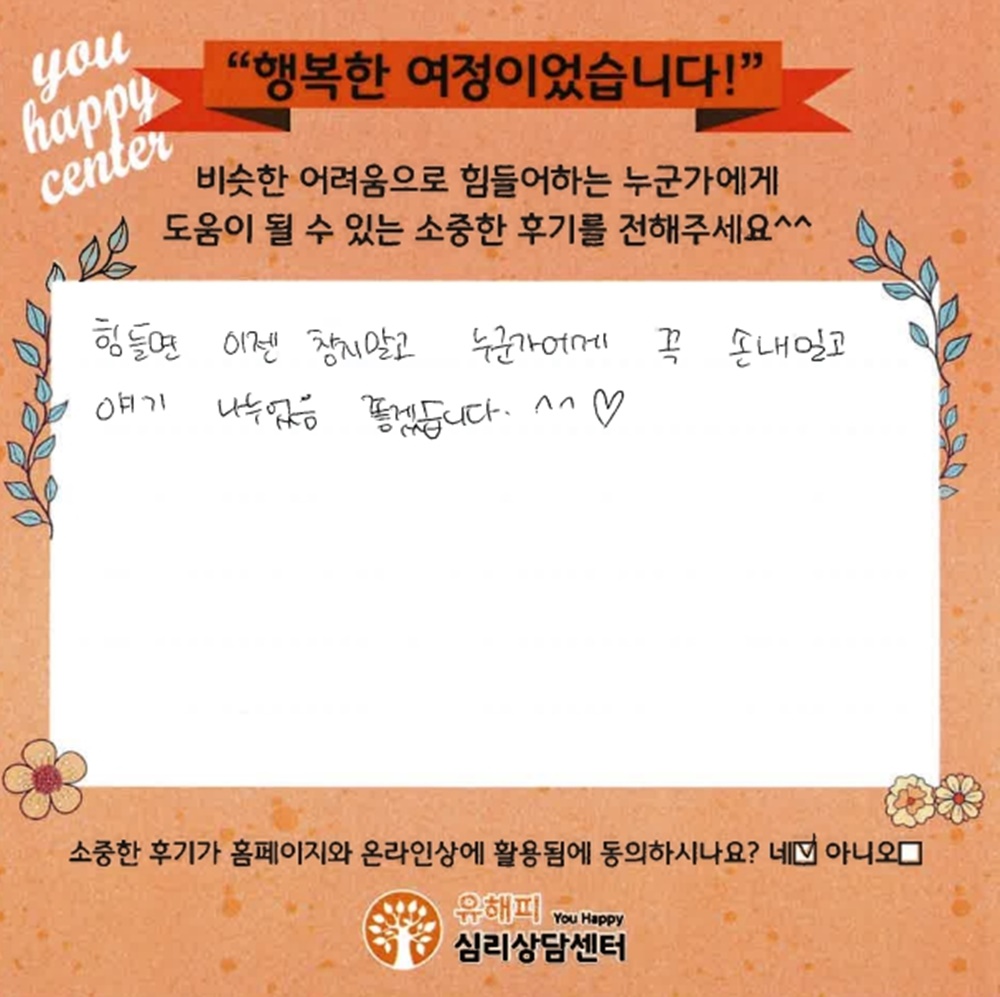 you
happy
center
“행복한 여정이었습니다!”
비슷한 어려움으로 힘들어하는 누군가에게
도움이 될 수 있는 소중한 후기를 전해주세요^^
힘들면 이젠 참지말고 누군가에게 꼭 손내밀고
얘기 나누었음 좋겠습니다. ^^ ♡
소중한 후기가 홈페이지와 온라인상에 활용됨에 동의하시나요? 네☑ 아니오☐
유해피 You Happy
심리상담센터